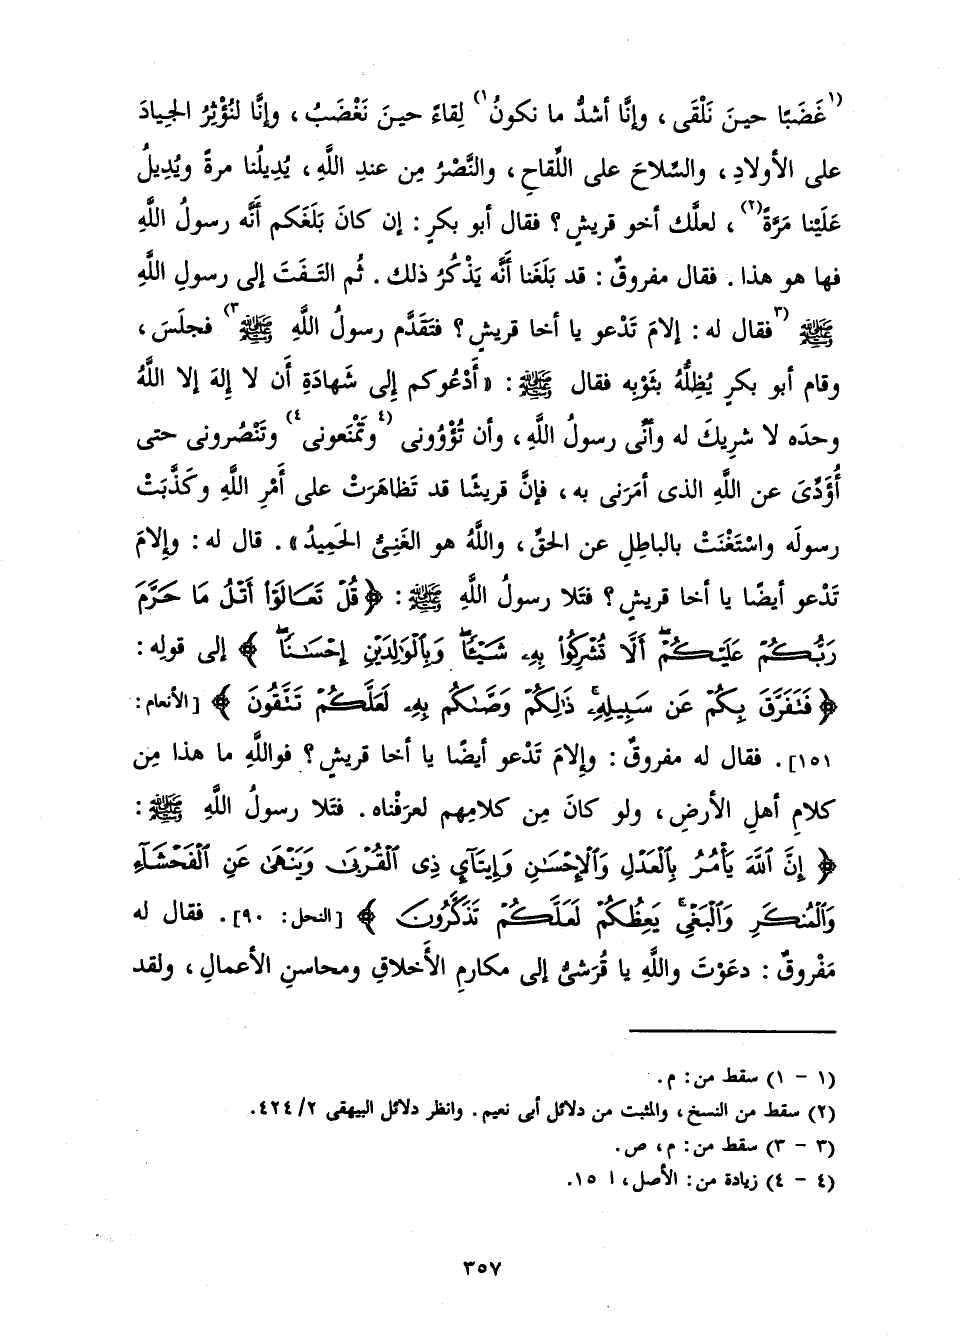 (١غَضَبًا حينَ نَلْقَى ، وإنَّا أشدُّ ما نكونُ١) لِقاءً حينَ نَغْضَبُ ، وإنَّا لنُؤْثِرُ الجيادَ
على الأولادِ ، والسِّلاحَ على اللِّقاحِ ، والنَّصْرُ مِن عندِ اللَّهِ ، يُدِيلُنا مرةً ويُدِيلُ
عَلَيْنا مَرَّةً(٢) ، لعلَّك أخو قريشٍ ؟ فقال أبو بكرٍ : إن كانَ بَلَغَكم أنَّه رسولُ اللَّهِ
فها هو هذا . فقال مفروقٌ : قد بَلَغَنا أنَّه يَذْكُرُ ذلك . ثُم التَفَتَ إلى رسولِ اللَّهِ
ﷺ (٣فقال له : إلامَ تَدْعو يا أخا قريشٍ ؟ فتَقَدَّم رسولُ اللَّهِ ﷺ٣) فجلَسَ ،
وقام أبو بكرٍ يُظِلُّهُ بثوبِه فقال ﷺ : « أَدْعُوكم إلى شَهادَةِ أَن لا إلهَ إلا اللَّهُ
وحدَه لا شريكَ له وأنِّى رسولُ اللَّهِ ، وأن تُؤْوُونى (٤وتَمْنَعونى٤) وتَنْصُرونى حتى
أُؤَدِّىَ عن اللَّهِ الذى أمَرَنى به ، فإنَّ قريشًا قد تَظاهَرَتْ على أَمْرِ اللَّهِ وكَذَّبَتْ
رسولَه واسْتَغْنَتْ بالباطلِ عن الحقِّ ، واللَّهُ هو الغَنِىُّ الحَميدُ » . قال له : وإلامَ
تَدْعو أيضًا يا أخا قريشٍ ؟ فتَلا رسولُ اللَّهِ ﷺ : ﴿ قُلْ تَعَالَوْا أَتْلُ مَا حَرَّمَ
رَبُّكُمْ عَلَيْكُمْ أَلَّا تُشْرِكُوا بِهِ شَيْئًا وَبِالْوَالِدَيْنِ إِحْسَانًا ﴾ إلى قولِه :
﴿ فَتَفَرَّقَ بِكُمْ عَن سَبِيلِهِ ذَٰلِكُمْ وَصَّاكُم بِهِ لَعَلَّكُمْ تَتَّقُونَ ﴾ [ الأنعام :
١٥١] . فقال له مفروقٌ : وإلامَ تَدْعو أيضًا يا أخا قريشٍ ؟ فواللَّهِ ما هذا مِن
كلامِ أهلِ الأرضِ ، ولو كانَ مِن كلامِهم لعرَفْناه . فتَلا رسولُ اللَّهِ ﷺ :
﴿ إِنَّ اللَّهَ يَأْمُرُ بِالْعَدْلِ وَالْإِحْسَانِ وَإِيتَآيِٕ ذِى الْقُرْبَىٰ وَيَنْهَىٰ عَنِ الْفَحْشَآءِ
وَالْمُنكَرِ وَالْبَغْىِ يَعِظُكُمْ لَعَلَّكُمْ تَذَكَّرُونَ ﴾ [ النحل : ٩٠] . فقال له
مَفْروقٌ : دعَوْتَ واللَّهِ يا قُرَشىُّ إلى مكارمِ الأَخلاقِ ومحاسنِ الأعمالِ ، ولقد
(١ - ١) سقط من : م .
(٢) سقط من النسخ ، والمثبت من دلائل أبى نعيم . وانظر دلائل البيهقى ٢/ ٤٢٤.
(٣ - ٣) سقط من : م ، ص .
(٤ - ٤) زيادة من : الأصل ، ا ١٥.
٣٥٧